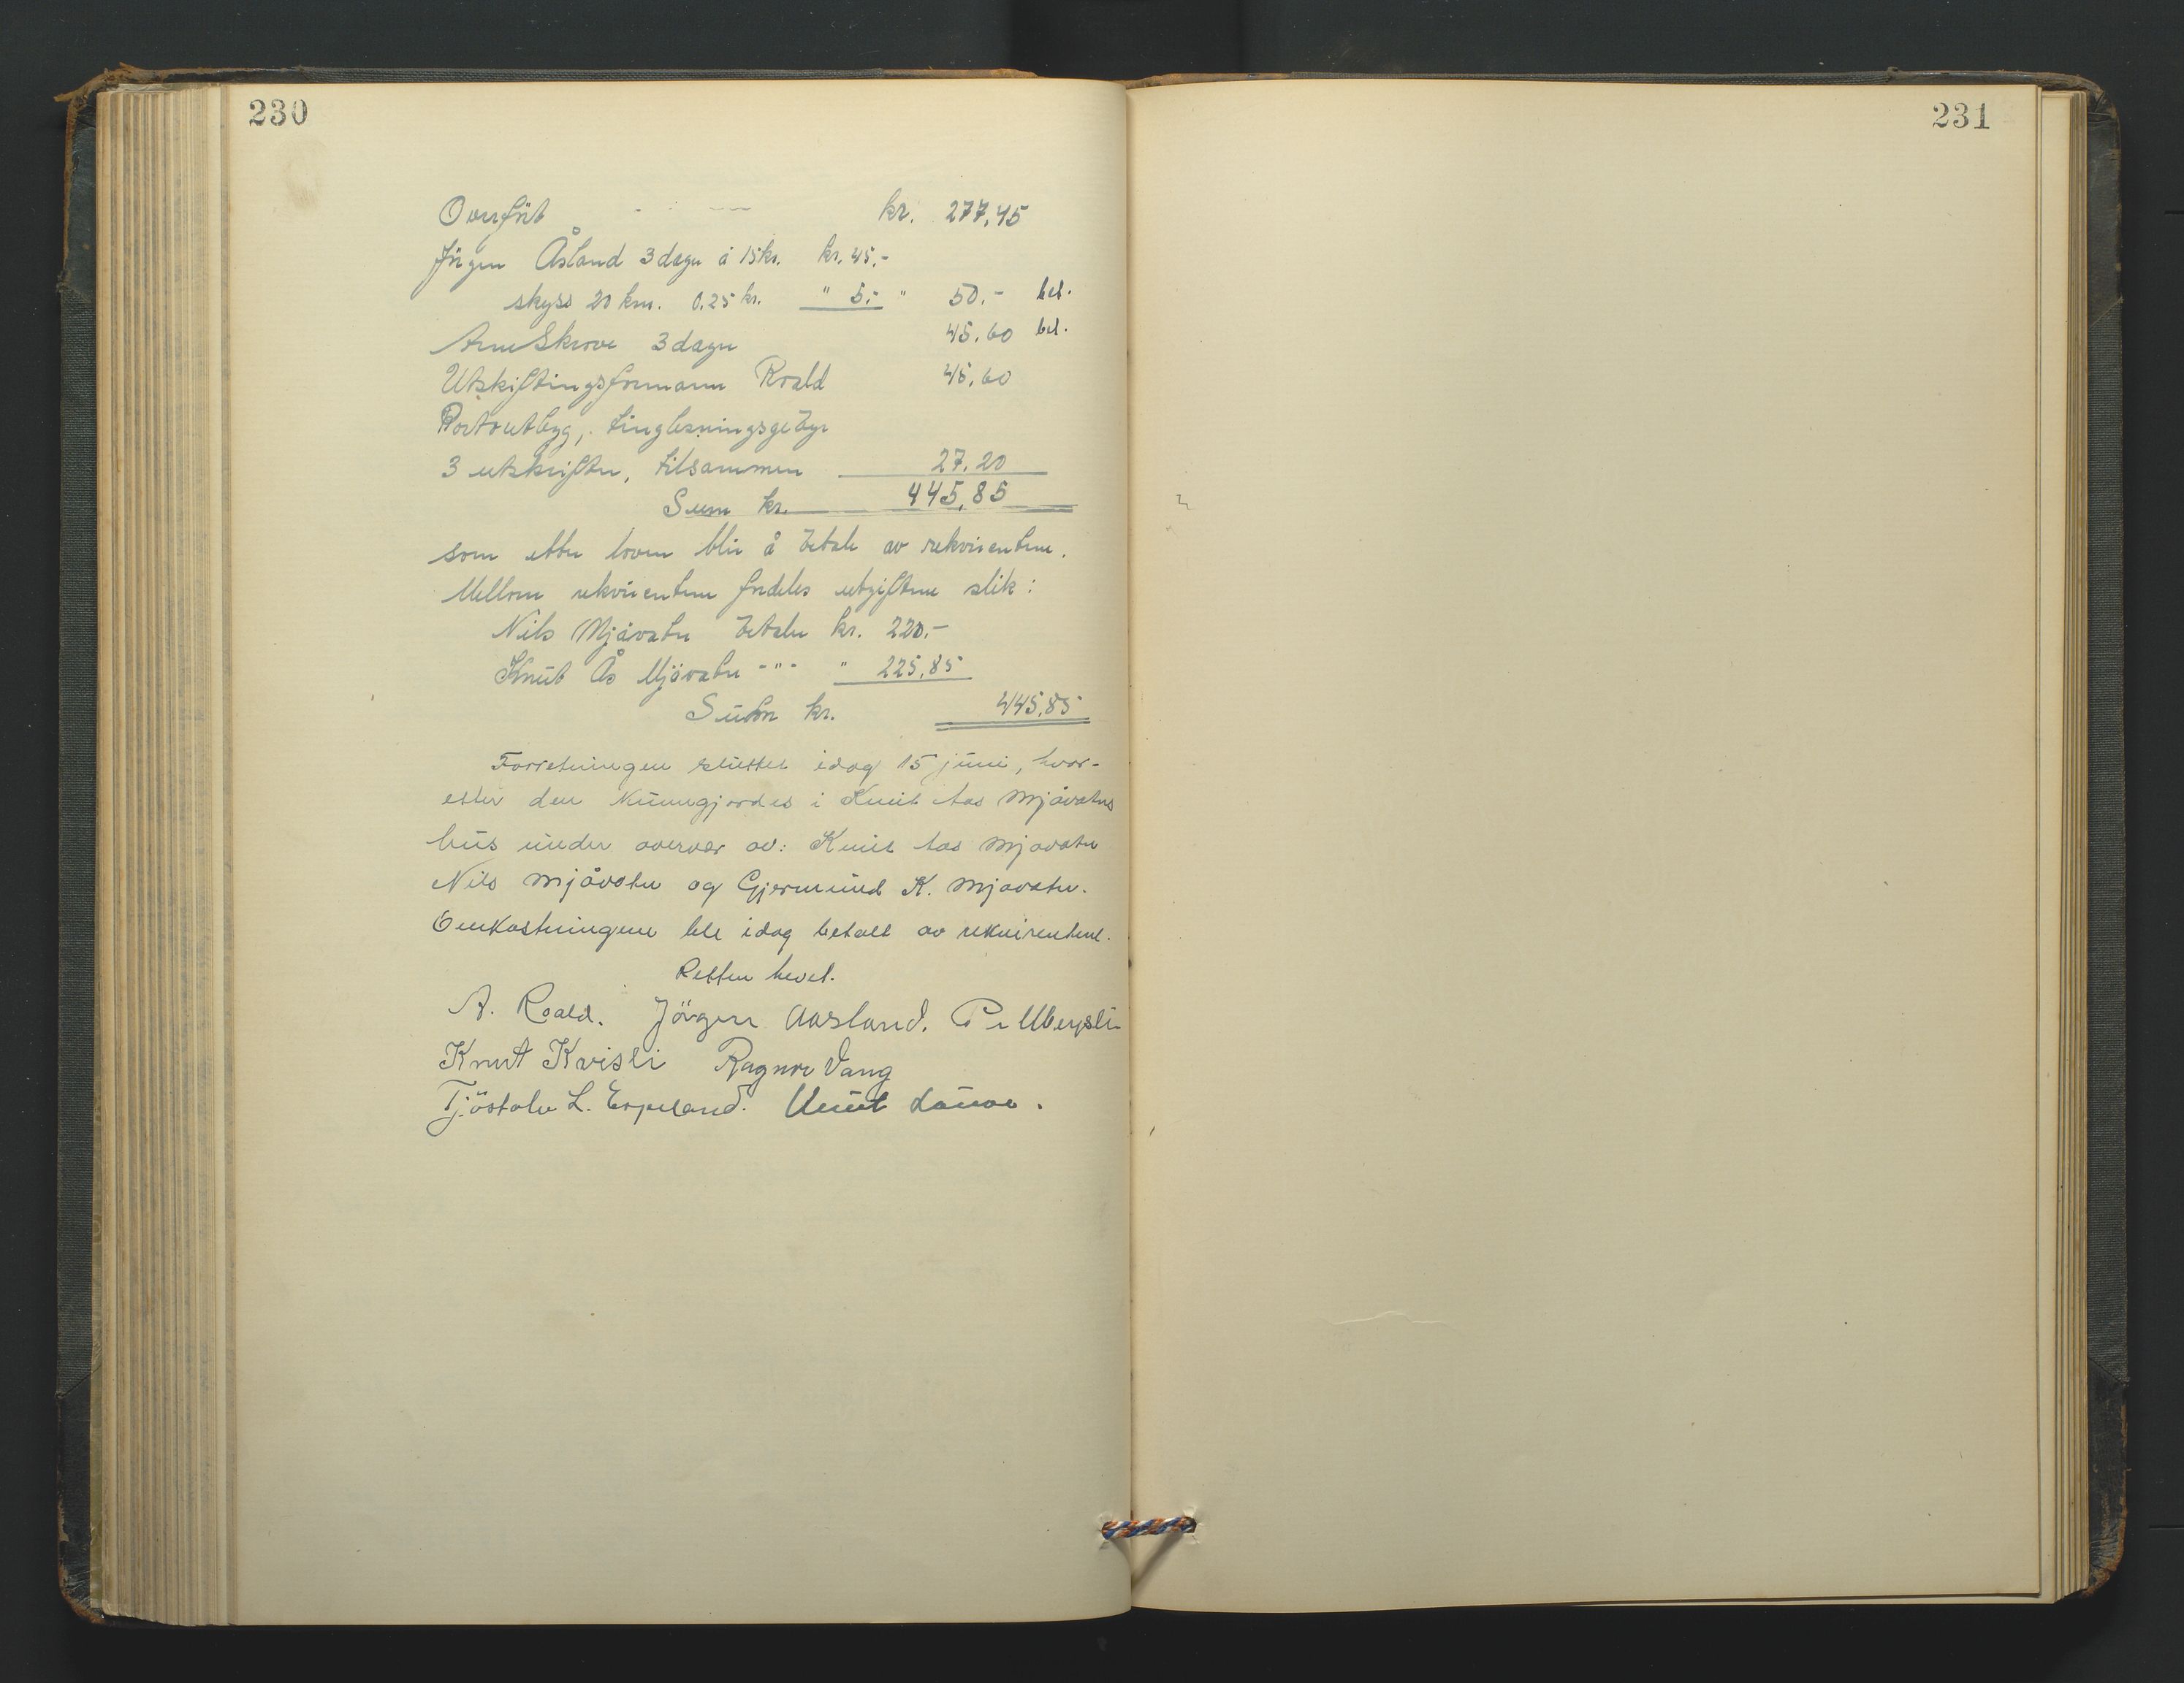 230
231
Overført kr. 277,45
Jörgen Åsland 3 dager á 15 kr. kr. 45,-
skyss 20 km. 0,25 kr. " 5,- " 50,- bet.
Arne Skrove 3 dager 45,60 bet.
Utskiftingsformann Roald 45,60
Portoutlegg, tinglesningsgebyr
3 utskrifter, tilsammen 27,20
Sum kr. 445,85
som etter loven blir å betale av rekvirentene.
Mellom rekvirentene fordeles utgiftene slik:
Nils Mjåvatn betaler kr. 220,-
Knut Ås Mjåvatn -"- " 225,85
Sum kr. 445,85
Forretningen sluttet idag 15 juni, hvor-
etter den kunngjordes i Knut Aas Mjåvatns
hus under overvær av: Knut Aas Mjavatn
Nils Mjåvatn og Gjermund K. Mjavatn.
Omkostningene ble idag betalt av rekvirentene.
Retten hevet.
A. Roald. Jörgen Aasland.
Knut Kvisli Ragnar Vang
Tjöstolv L. Espeland. Knut